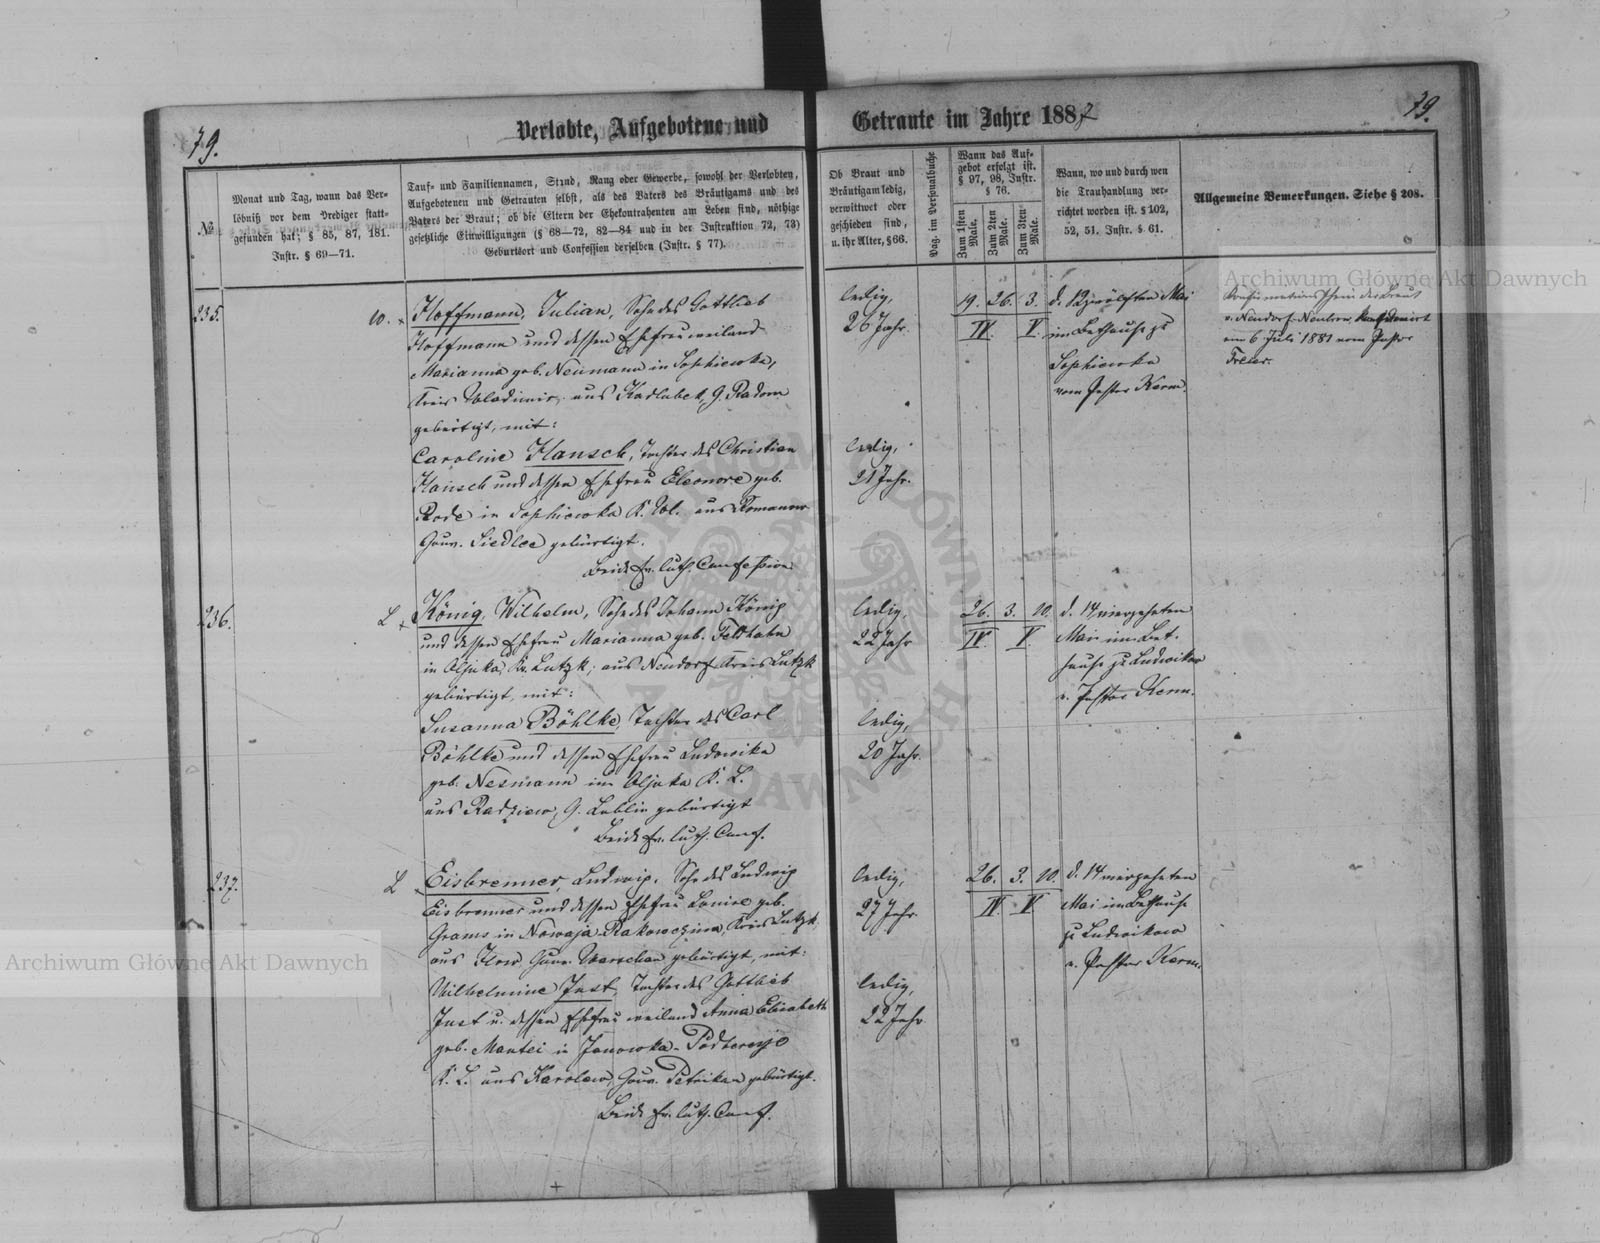 79.
Verlobte, Aufgebotene und
Getraute im Jahre 1887
79.
№
Monat und Tag, wann das Ver-
löbniß vor dem Prediger statt-
gefunden hat; § 85, 87, 181.
Instr. § 69—71.
Tauf- und Familiennamen, Stand, Rang oder Gewerbe, sowohl der Verlobten,
Aufgebotenen und Getrauten selbst, als des Vaters des Bräutigams und des
Vaters der Braut; ob die Eltern der Ehekontrahenten am Leben sind, nöthige
gesetzliche Einwilligungen (§ 68—72, 82—84 und in der Instruktion 72, 73)
Geburtsort und Confession derselben (Instr. § 77).
Ob Braut und
Bräutigam ledig,
verwittwet oder
geschieden sind,
u. ihr Alter, § 66.
Pag. im Personalbuche
Wann das Auf-
gebot erfolgt ist.
§ 97, 98, Instr.
§ 76.
Zum 1sten Male.
Zum 2ten Male.
Zum 3ten Male.
Wann, wo und durch wen
die Trauhandlung ver-
richtet worden ist. § 102,
52, 51. Instr. § 61.
Allgemeine Bemerkungen. Siehe § 208.
235.
w. Hoffmann, Julian, Sohn des Gottlieb
Hoffmann und dessen Ehefrau weiland
Marianna geb. Neumann in Sophiewka,
Kreis Wladimir, aus Kadlubek, G. Radom
gebürtigt, mit:
Caroline Hansch, Tochter des Christian
Hansch und dessen Ehefrau Eleonore geb.
Rode in Sophiewka K. Wl. aus Romanow
Gouv. Siedlce gebürtigt.
Beide Ev. luth. Confession
ledig,
26 Jahr.
ledig,
21 Jahr.
19. 26. 3.
IV. V.
d. Zwölften Mai
im Bethause zu
Sophiewka
vom Pastor Kerm.
Confirmationsschein der Braut
v. Neudorf-Neubrow,
am 6 Juli 1881 vom Pastor
236.
L König, Wilhelm, Sohn des Johann König
und dessen Ehefrau Marianna geb. Feldhahn
in Oljuka, Kr. Lutzk, aus Neudorf Kreis Lutzk
gebürtigt, mit:
Susanna Böhlke, Tochter des Carl
Böhlke und dessen Ehefrau Ludowika
geb. Nesmann in Oljuka K. L.
aus Radziew, G. Lublin gebürtigt
Beide Ev. luth. Conf.
ledig,
22 Jahr
ledig,
20 Jahr.
26. 3. 10.
IV. V.
d. 14 vierzehnten
Mai im Bet-
hause zu Ludwikow
v. Pastor Kerm.
237.
L Eisbrenner, Ludwig, Sohn des Ludwig
Eisbrenner und dessen Ehefrau Louise geb.
Grams in Nowaja-Rakowczina, Kreis Lutzk,
aus Ilow, Gouv. Warschau gebürtigt, mit:
Wilhelmine Just, Tochter des Gottlieb
Just u. dessen Ehefrau weiland Anna Elisabeth
geb. Mantei in Janowka-
K. L. aus Karolew, Gouv. Petrikau gebürtigt.
Beide Ev. luth. Conf.
ledig,
27 Jahr.
ledig,
22 Jahr
26. 3. 10.
IV. V
d. 14 vierzehnten
Mai im Bethause
zu Ludwikow
v. Pastor Kerm.
Archiwum Główne Akt Dawnych
Archiwum Główne Akt Dawnych